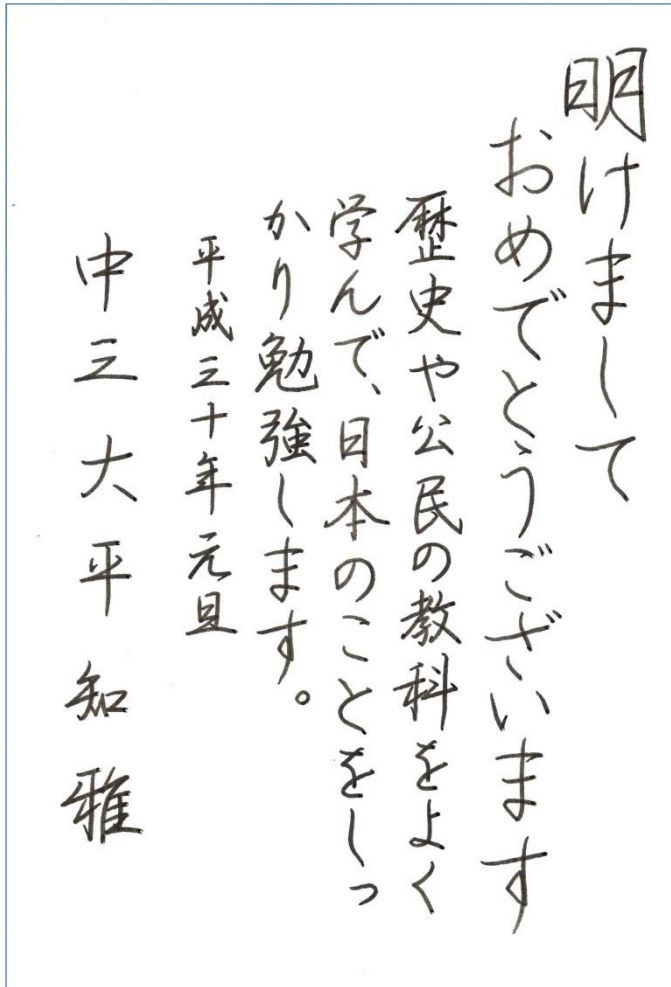 明けまして
おめでとうございます
歴史や公民の教科をよく
学んで、日本のことをしっ
かり勉強します。
平成三十年元旦
中三大平知雅